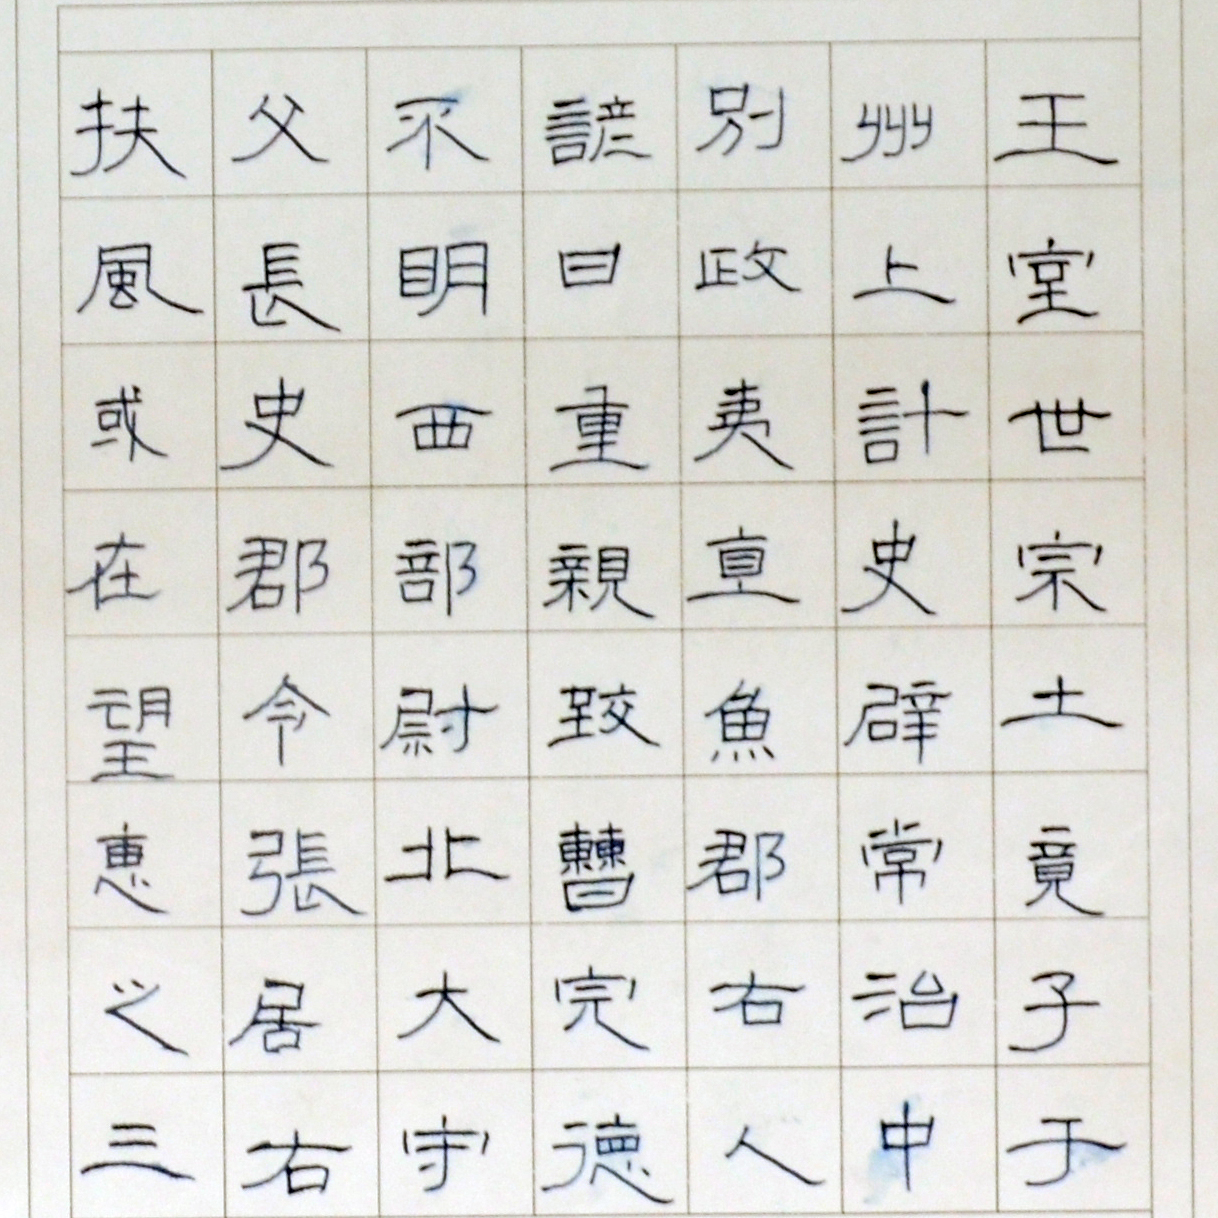 王堂世宗土竟子于
州上計史辟常治中
別政夷亘魚郡右人
諺曰重親致曹完德
不明西部尉北大守
父長史郡令張居右
扶風或在望惠之三